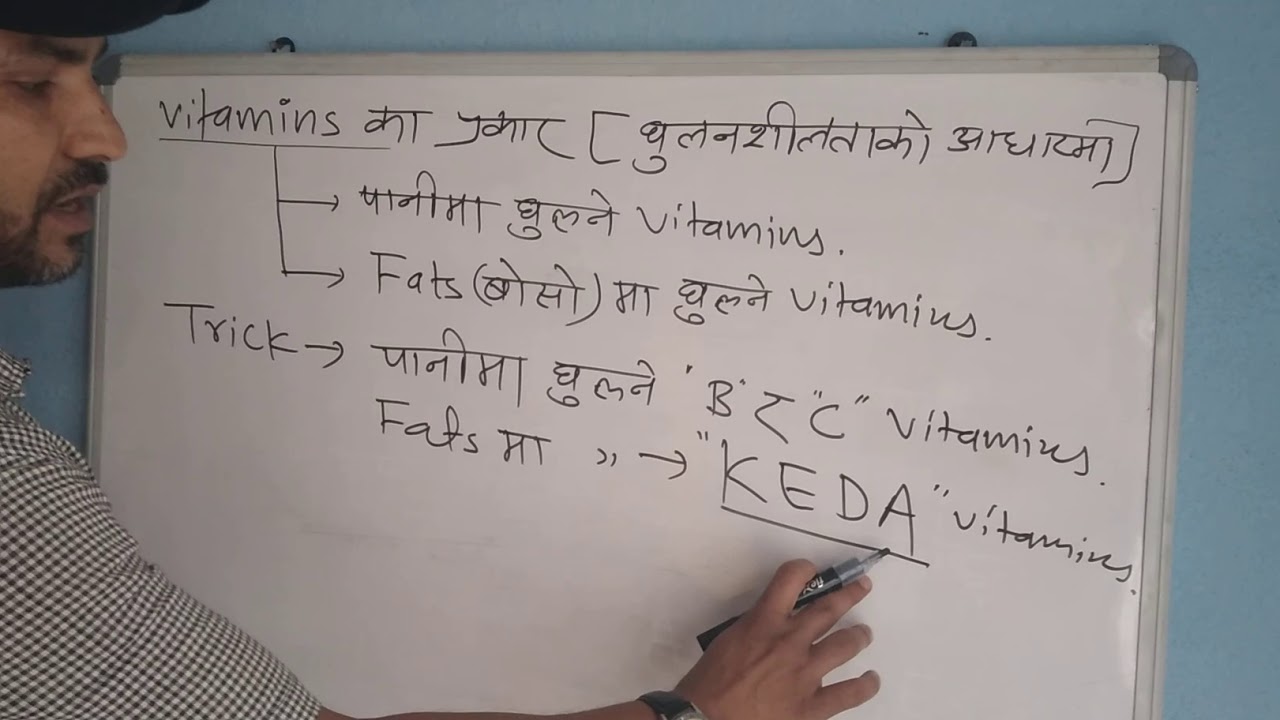 vitamins का प्रकार [घुलनशीलताको आधारमा]
→ पानीमा घुलने vitamins.
→ Fats (बोसो) मा घुलने vitamins.
Trick → पानीमा घुलने "B" र "C" vitamins.
Fats मा ,, → "KEDA" vitamins.